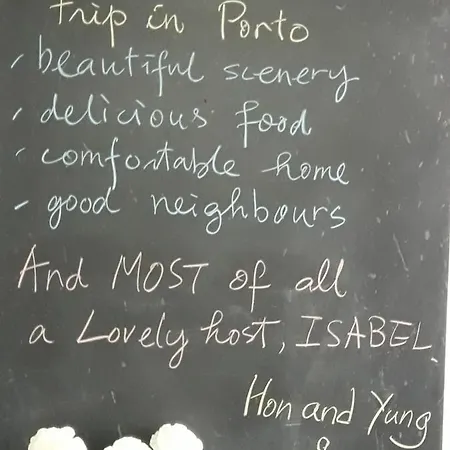 trip in Porto
- beautiful scenery
- delicious food
- comfortable home
- good neighbours
And MOST of all
a Lovely host, ISABEL.
Hon and Yung